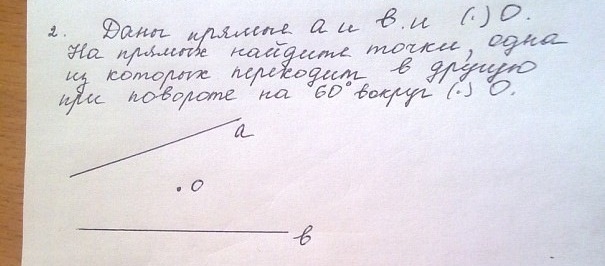 2. Даны прямые а и в. и (.) О.
На прямых найдите точки, одна
из которых переходит в другую
при повороте на 60° вокруг (.) О.
а
о
в